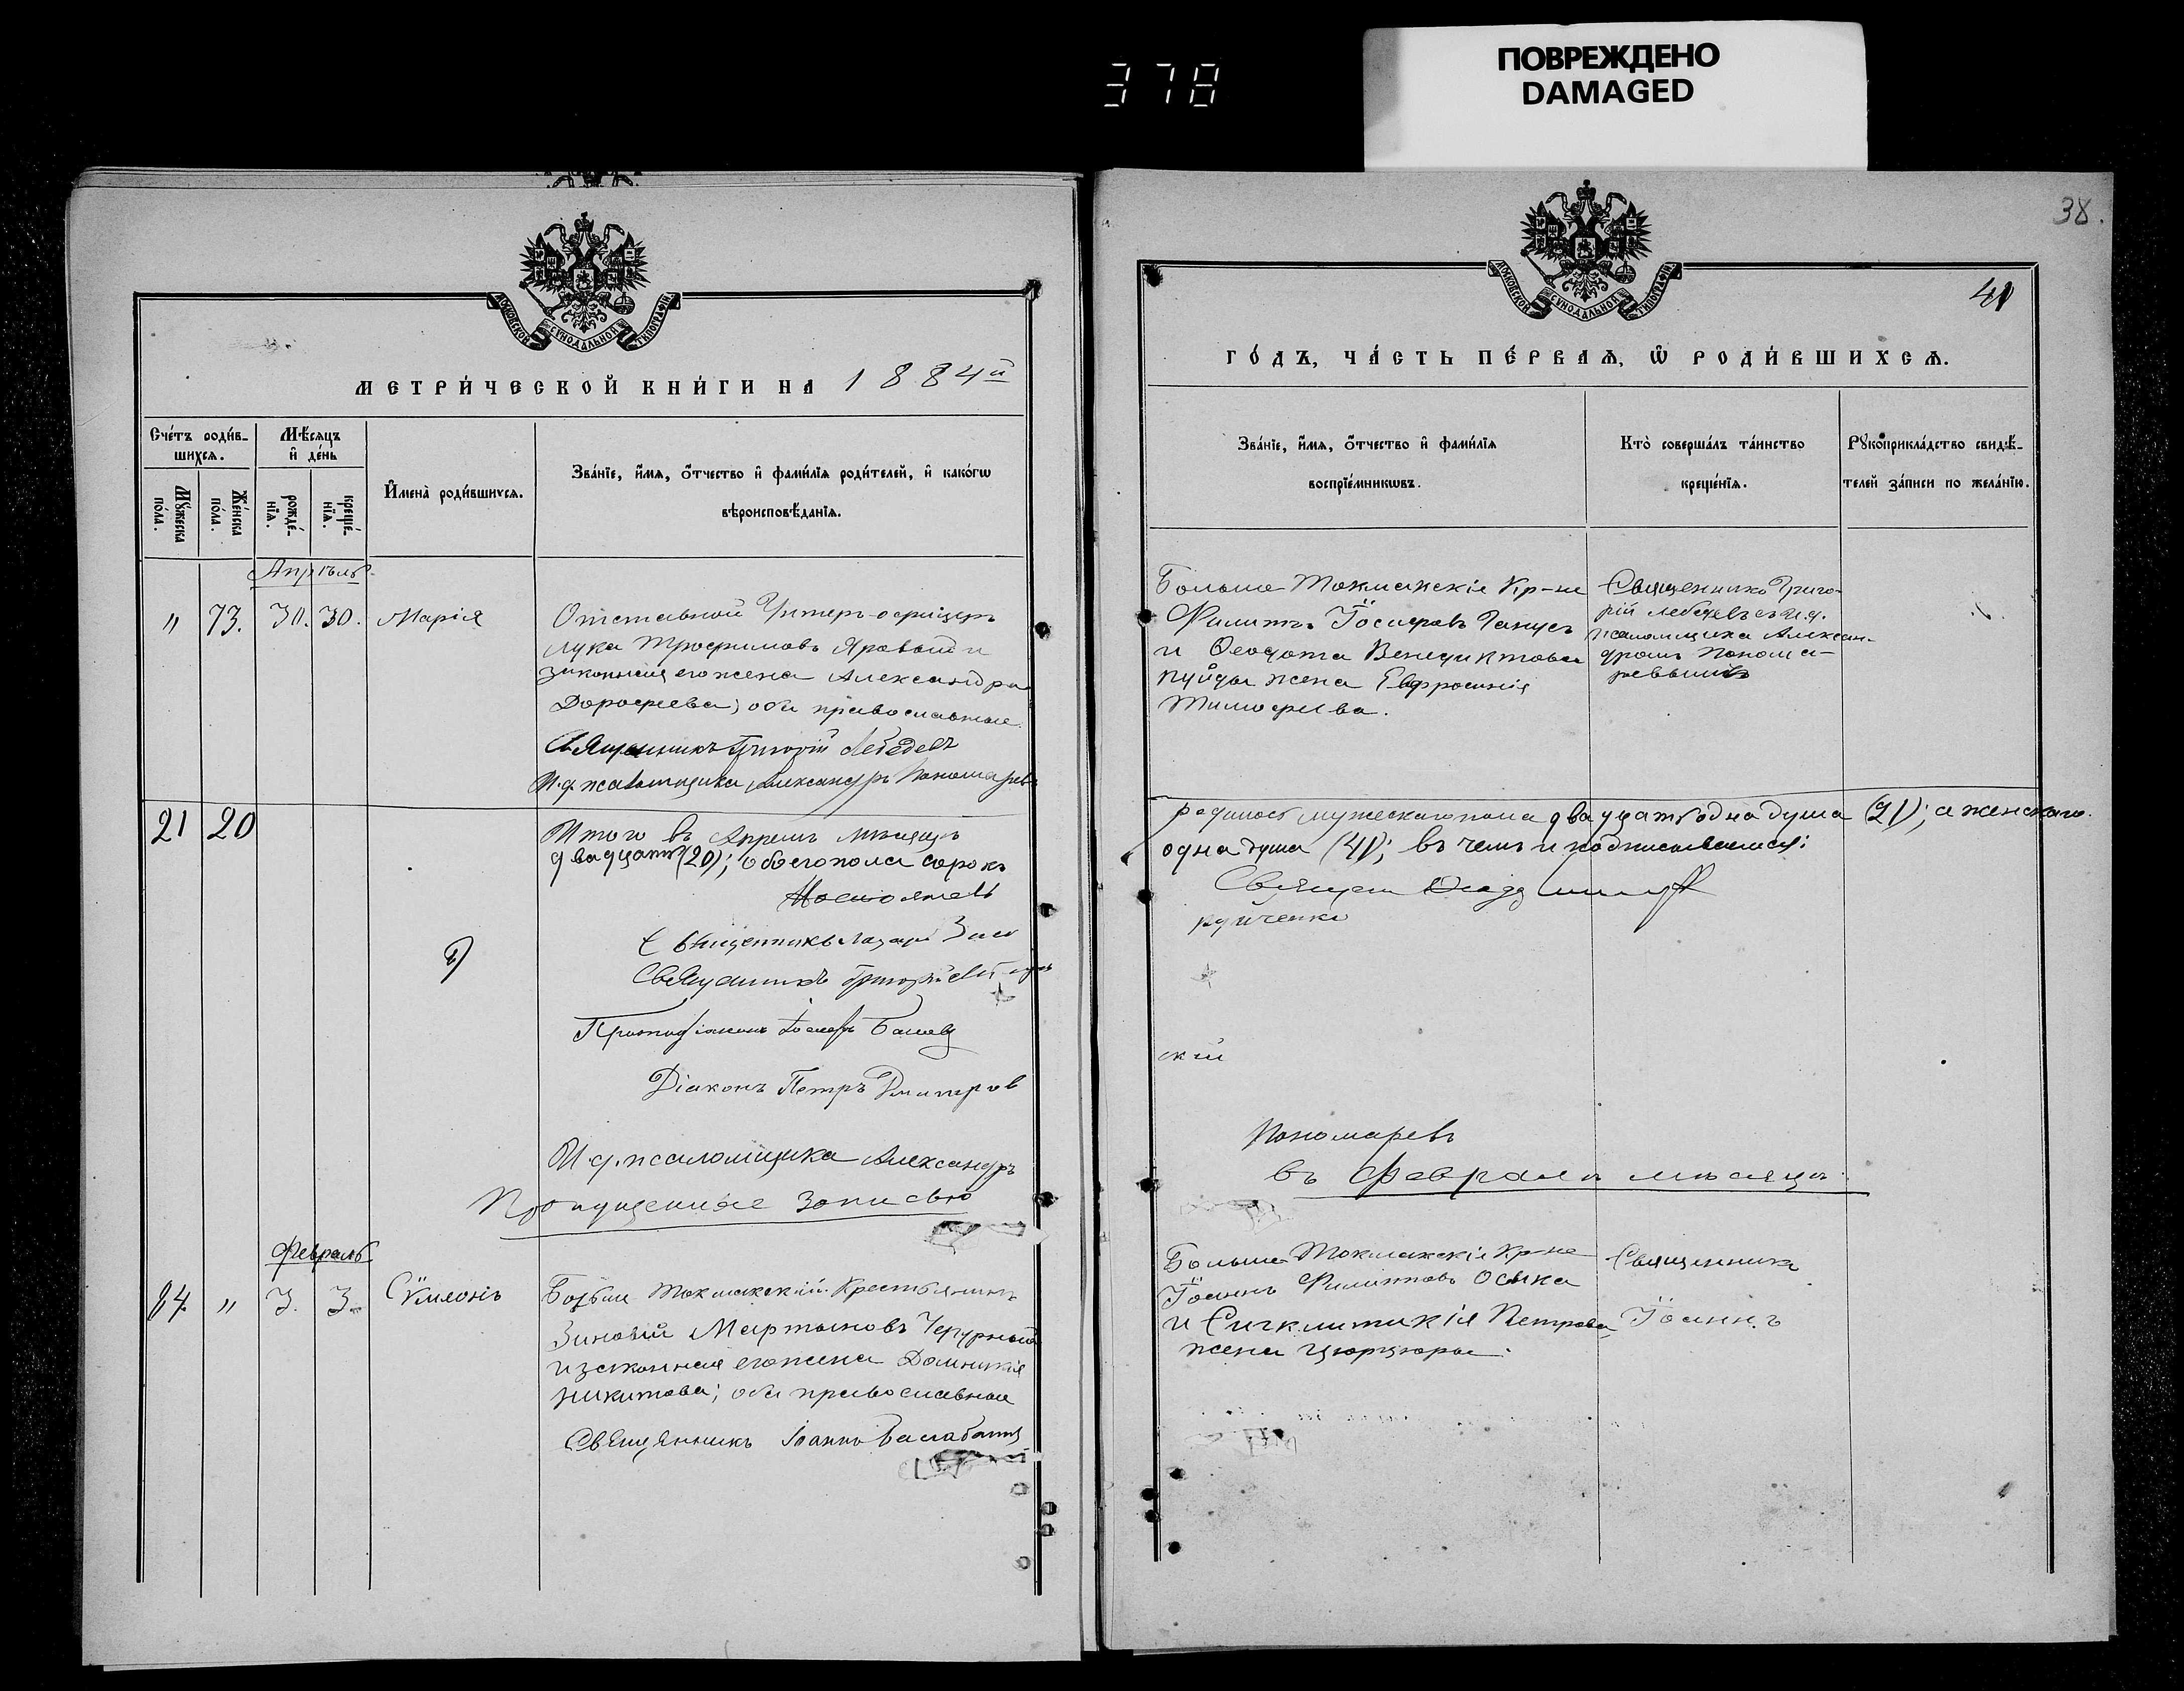 378
ПОВРЕЖДЕНО
DAMAGED
МОСКОВСКОЙ СѴНОДАЛЬНОЙ ТИПОГРАФІИ
МЕТРИ́ЧЕСКОЙ КНИ́ГИ НА 1884й
Сче́тъ роди́в-
шихсѧ.
Мѣ́сѧцъ
и҆ де́нь
Мꙋ́жеска
по́ла.
Же́нска
по́ла.
рожде́-
нїѧ.
креще́-
нїѧ.
И҆мена̀ роди́вшихсѧ.
Зва́нїе, и҆́мѧ, ѻ҆́тчество и҆ фами́лїѧ роди́телей, и҆ како́гѡ
вѣроисповѣ́данїѧ.
Апрѣль
" 73. 30. 30. Марія
Отставной Унтеръ-офицеръ
Лука Трофимовъ Яровый и
законная его жена Александра
Дорофеева; оба православные
Священникъ Григорій Лебедевъ
И.д. псаломщика Александръ Пономаревъ
21 20
Итого въ Апрелѣ мѣсяцѣ
двадцать (20); обоего пола сорокъ
Священникъ Лазарь
Священникъ Григорій
Протодіаконъ Іосифъ
Діаконъ Петръ Дмитров
И.д. псаломщика Александръ
Пропущенные записью
Февраль
84. " 3. 3. Сѵмеонъ
Больше Токмакскій Крестьянинъ
Зиновій Мартыновъ Чепурный
и законная его жена Домникія
Никитова; оба православные
Священникъ Іоаннъ Баслабанц
38.
МОСКОВСКОЙ СѴНОДАЛЬНОЙ ТИПОГРАФІИ
41
ГО́ДЪ, ЧА́СТЬ ПЕ́РВАѦ, Ѡ҆ РОДИ́ВШИХСѦ.
Зва́нїе, и҆́мѧ, ѻ҆́тчество и҆ фами́лїѧ
воспрїе́мникѡвъ.
Кто̀ соверша́лъ та́инство
креще́нїѧ.
Рꙋкоприкла́дство свидѣ́-
телей за́писи по жела́нїю.
Больше Токмакскіе Кр-не
Филиппъ Іосифовъ Ганусъ
и Феодота Венедиктова
Пуйды жена Евфросинія
Тимофеева.
Священникъ Григо-
рій Лебедевъ съ И.д.
псаломщика Алексан-
дромъ Понома-
ревымъ
родилось мужескаго пола двадцать одна душа (21); а женскаго
одна душа (41); въ чемъ и подписываемся:
скій
Пономаревъ
въ Февралѣ мѣсяцѣ
Больше Токмакскіе Кр-не
Іоаннъ Филипповъ Осыка
и Сигклитикія Петрова
жена Цюрцюры.
Священникъ
Іоаннъ